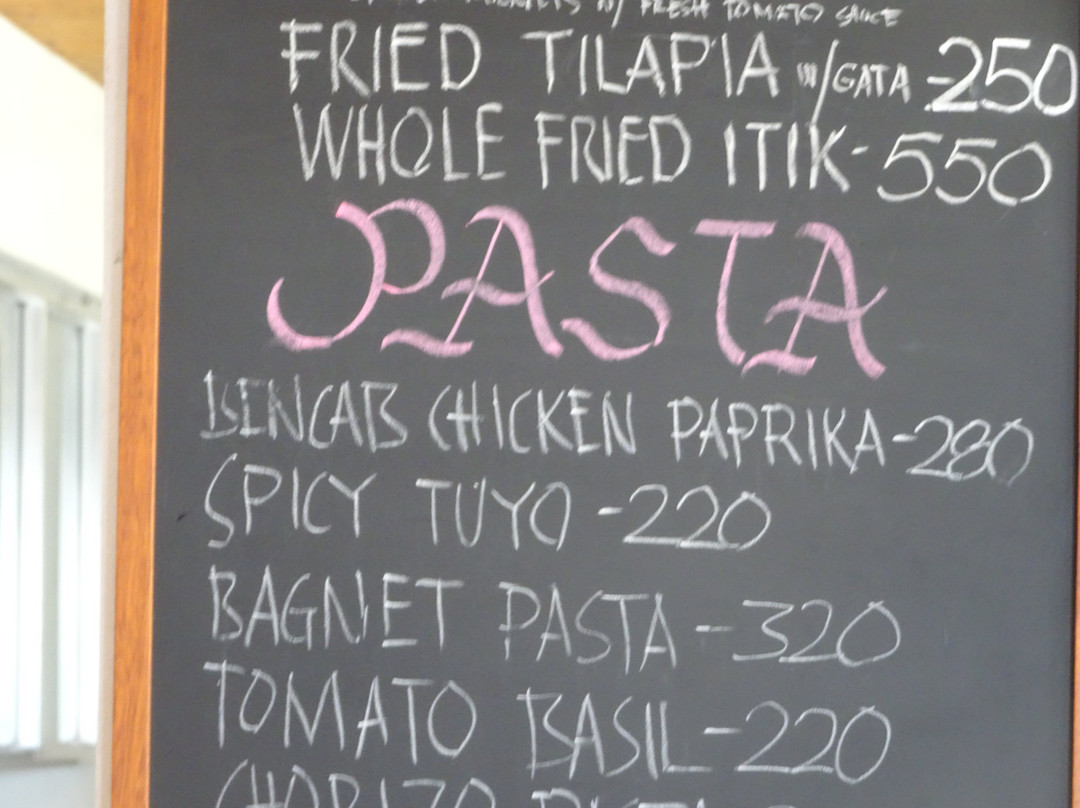 W/ FRESH TOMATO SAUCE
FRIED TILAPIA W/GATA -250
WHOLE FRIED ITIK - 550
PASTA
BENCAB CHICKEN PAPRIKA -280
SPICY TUYO -220
BAGNET PASTA - 320
TOMATO BASIL - 220
CHORIZO PASTA